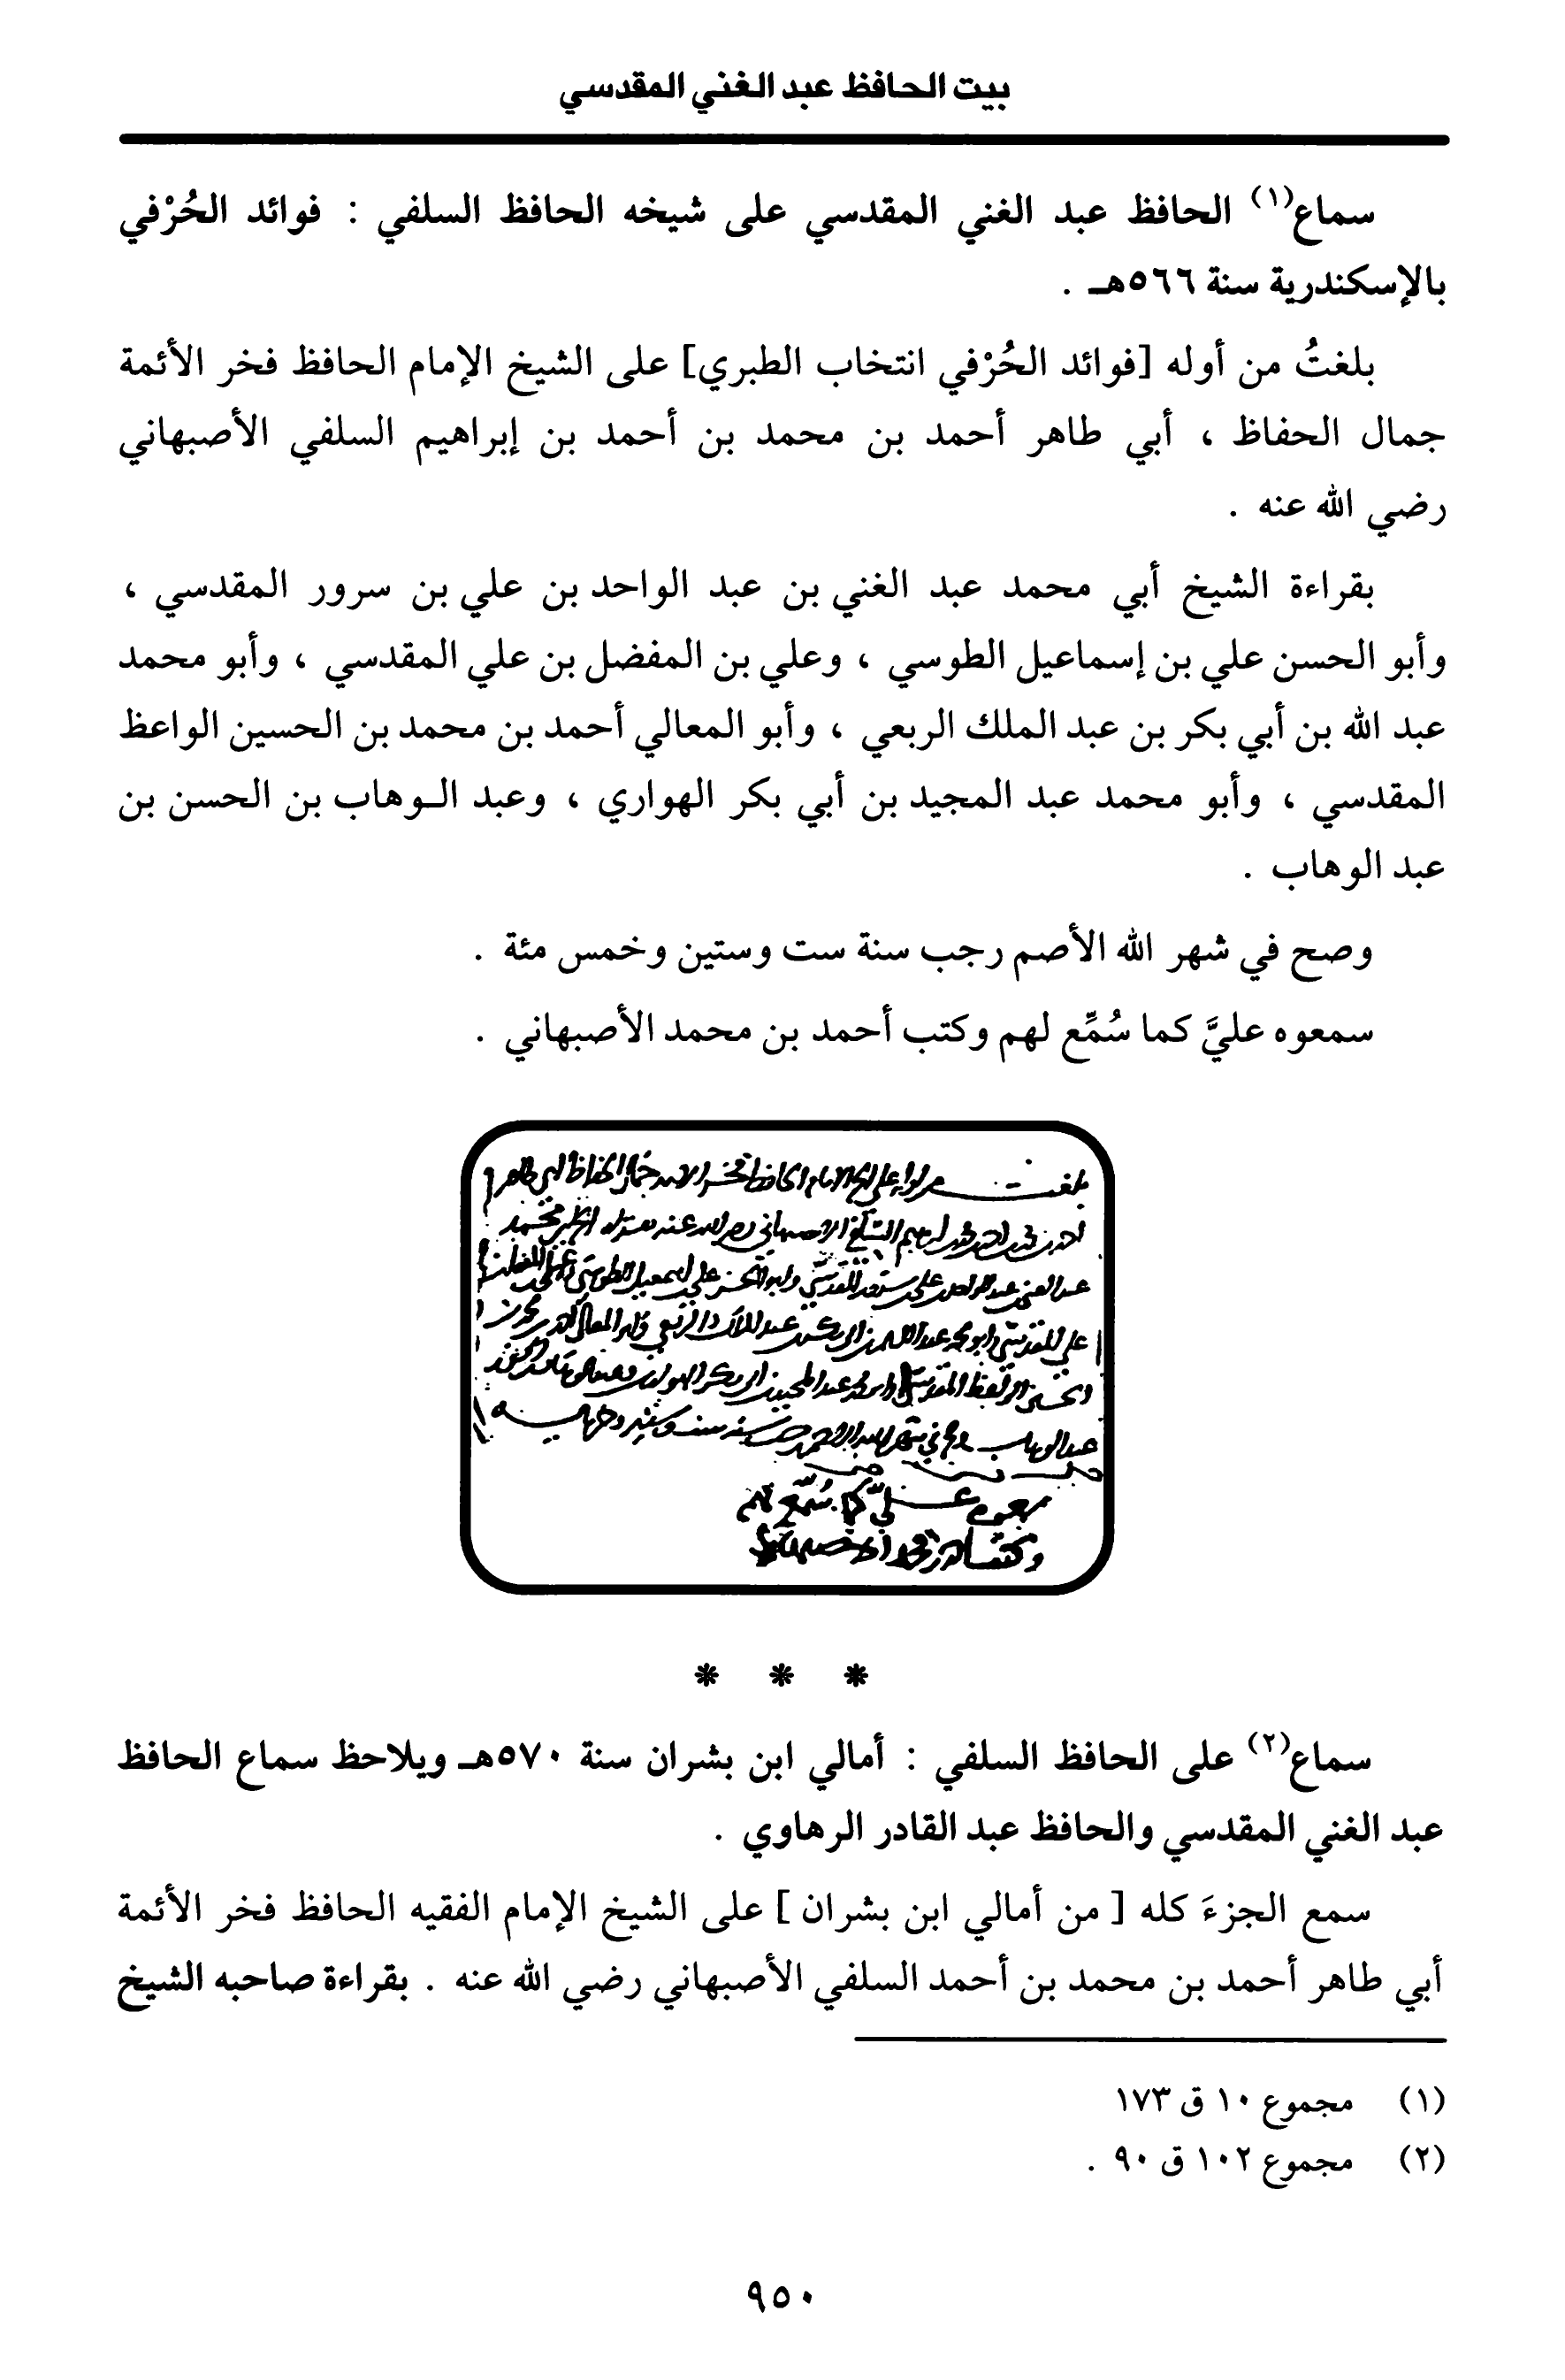 بيت الحافظ عبد الغني المقدسي
سماع(١) الحافظ عبد الغني المقدسي على شيخه الحافظ السلفي : فوائد الحُرْفي
بالإسكندرية سنة ٥٦٦هـ .
بلغتُ من أوله [فوائد الحُرْفي انتخاب الطبري] على الشيخ الإمام الحافظ فخر الأئمة
جمال الحفاظ ، أبي طاهر أحمد بن محمد بن أحمد بن إبراهيم السلفي الأصبهاني
رضي الله عنه .
بقراءة الشيخ أبي محمد عبد الغني بن عبد الواحد بن علي بن سرور المقدسي ،
وأبو الحسن علي بن إسماعيل الطوسي ، وعلي بن المفضل بن علي المقدسي ، وأبو محمد
عبد الله بن أبي بكر بن عبد الملك الربعي ، وأبو المعالي أحمد بن محمد بن الحسين الواعظ
المقدسي ، وأبو محمد عبد المجيد بن أبي بكر الهواري ، وعبد الـوهاب بن الحسن بن
عبد الوهاب .
وصح في شهر الله الأصم رجب سنة ست وستين وخمس مئة .
سمعوه عليَّ كما سُمِّع لهم وكتب أحمد بن محمد الأصبهاني .
* * *
سماع(٢) على الحافظ السلفي : أمالي ابن بشران سنة ٥٧٠هـ ويلاحظ سماع الحافظ
عبد الغني المقدسي والحافظ عبد القادر الرهاوي .
سمع الجزءَ كله [ من أمالي ابن بشران ] على الشيخ الإمام الفقيه الحافظ فخر الأئمة
أبي طاهر أحمد بن محمد بن أحمد السلفي الأصبهاني رضي الله عنه . بقراءة صاحبه الشيخ
(١) مجموع ١٠ ق ١٧٣
(٢) مجموع ١٠٢ ق ٩٠ .
٩٥٠